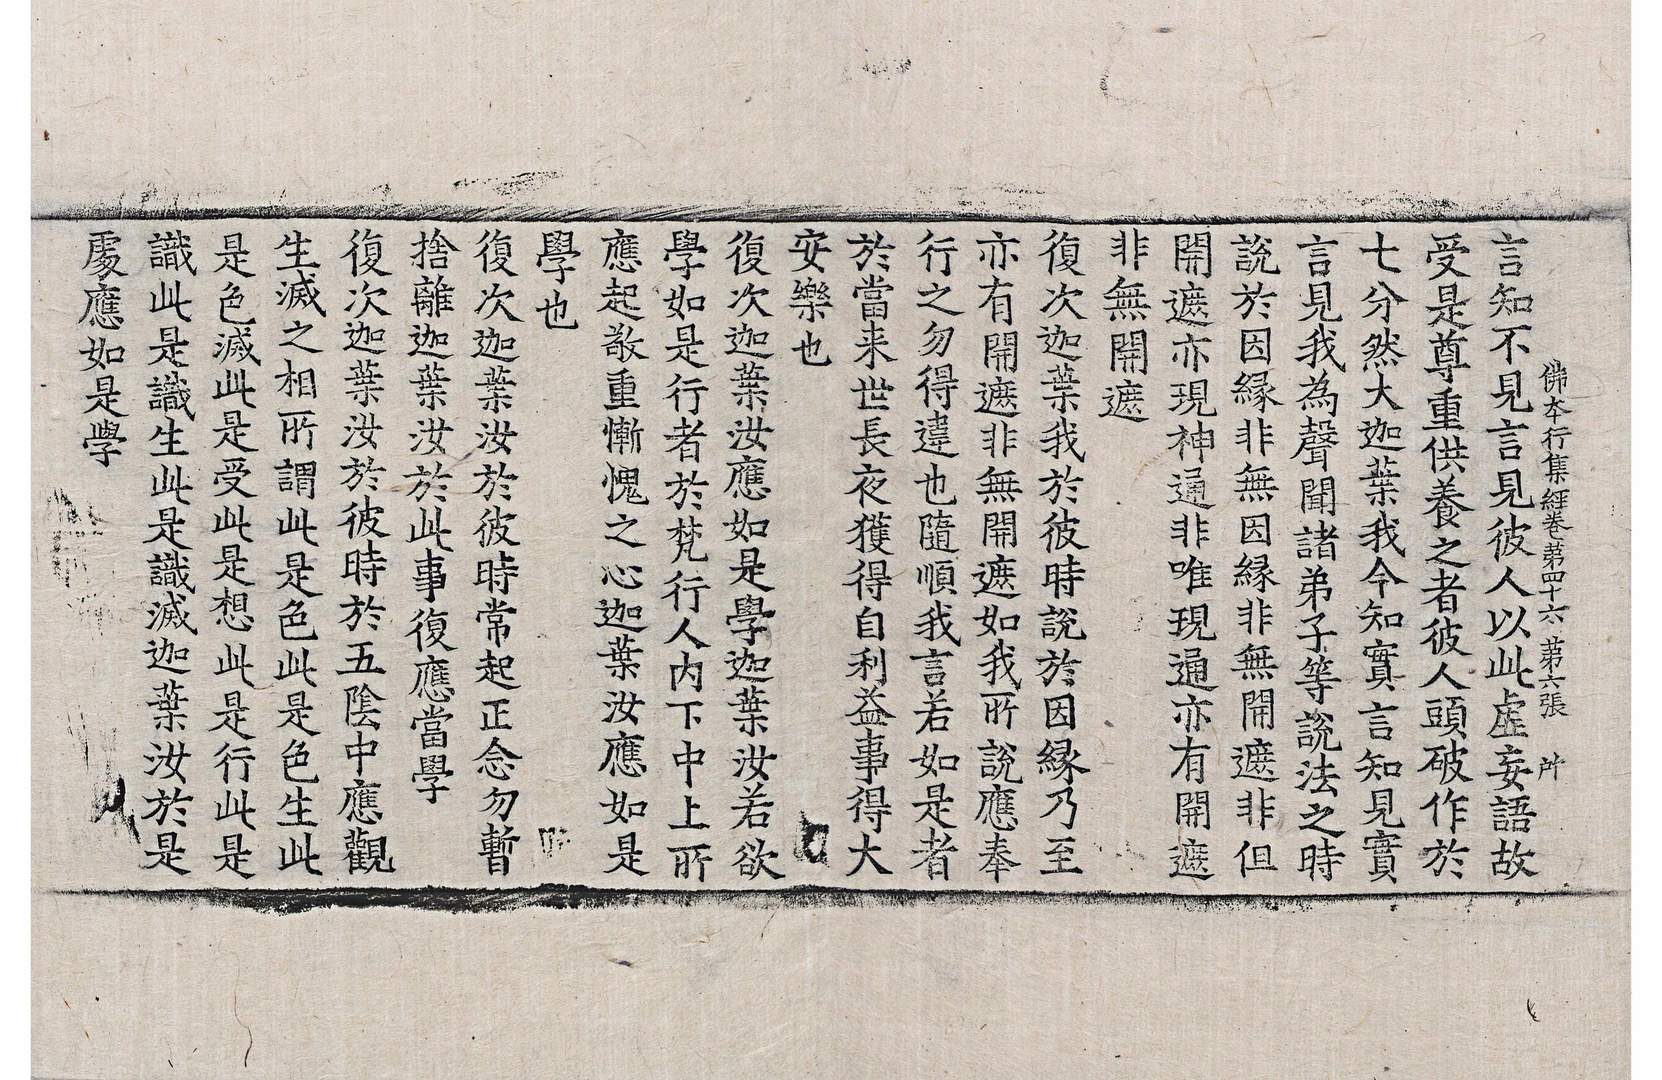 佛本行集經卷第四十六 第六張 所
言知不見言見彼人以此虛妄語故
受是尊重供養之者彼人頭破作於
七分然大迦葉我今知實言知見實
言見我為聲聞諸弟子等說法之時
說於因緣非無因緣非無開遮非但
開遮亦現神通非唯現通亦有開遮
非無開遮
復次迦葉我於彼時說於因緣乃至
亦有開遮非無開遮如我所說應奉
行之勿得違也隨順我言若如是者
於當来世長夜獲得自利益事得大
安樂也
復次迦葉汝應如是學迦葉汝若欲
學如是行者於梵行人內下中上所
應起敬重慚愧之心迦葉汝應如是
學也
復次迦葉汝於彼時常起正念勿暫
捨離迦葉汝於此事復應當學
復次迦葉汝於彼時於五陰中應觀
生滅之相所謂此是色此是色生此
是色滅此是受此是想此是行此是
識此是識生此是識滅迦葉汝於是
處應如是學